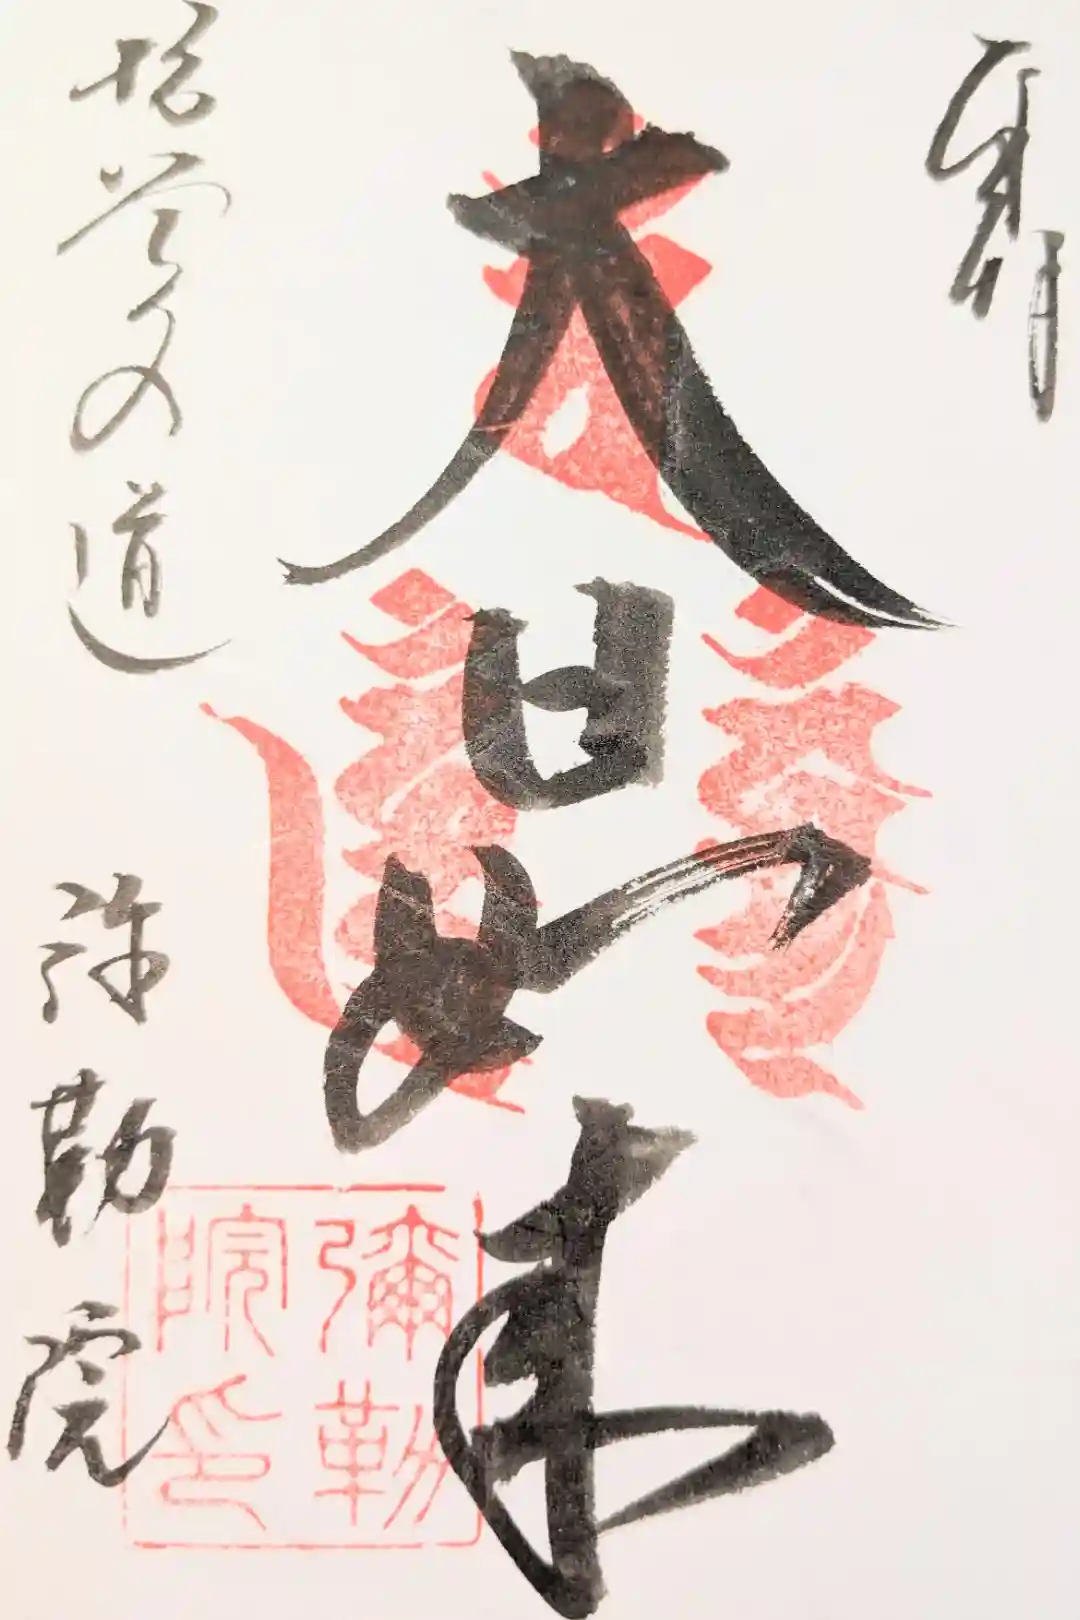 大日如来
哲学の道
弥勒院
彌勒
院印